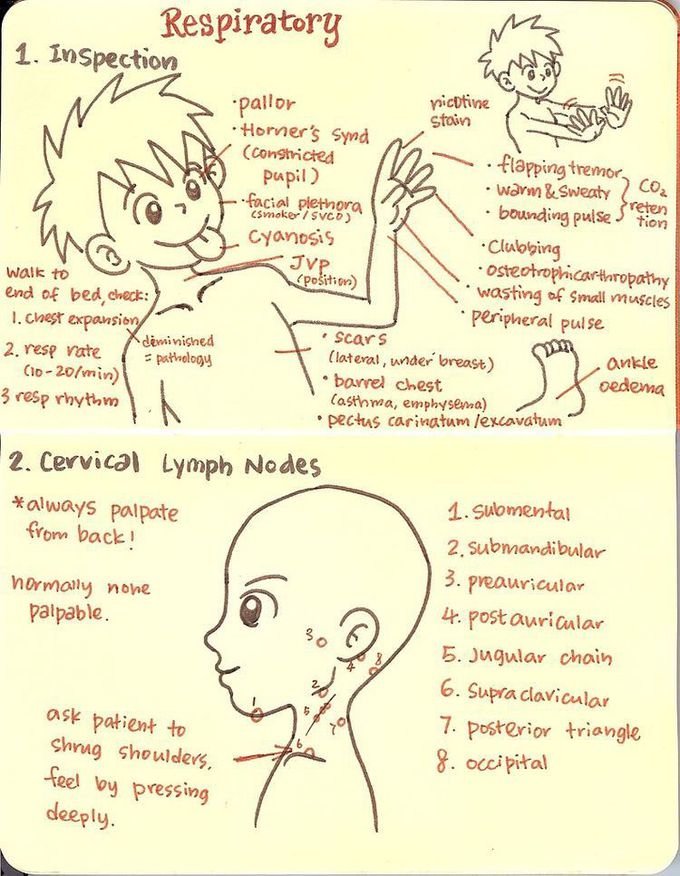 Respiratory
1. Inspection
·pallor
·Horner's Synd
(constricted
pupil)
·facial plethora
(smoker/SVCO)
Cyanosis
JVP
(position)
nicotine
stain
·flapping tremor
·warm & sweaty
·bounding pulse
CO2
reten
tion
·Clubbing
·osteotrophicarthropathy
·wasting of small muscles
·peripheral pulse
walk to
end of bed, check:
1. chest expansion
diminished
= pathology
2. resp rate
(10-20/min)
3 resp rhythm
·scars
(lateral, under breast)
·barrel chest
(asthma, emphysema)
·pectus carinatum/excavatum
ankle
oedema
2. Cervical Lymph Nodes
*always palpate
from back!
normally none
palpable.
ask patient to
shrug shoulders,
feel by pressing
deeply.
3
4
8
2
5
1
7
6
1. submental
2. submandibular
3. preauricular
4. postauricular
5. Jugular chain
6. Supraclavicular
7. posterior triangle
8. occipital